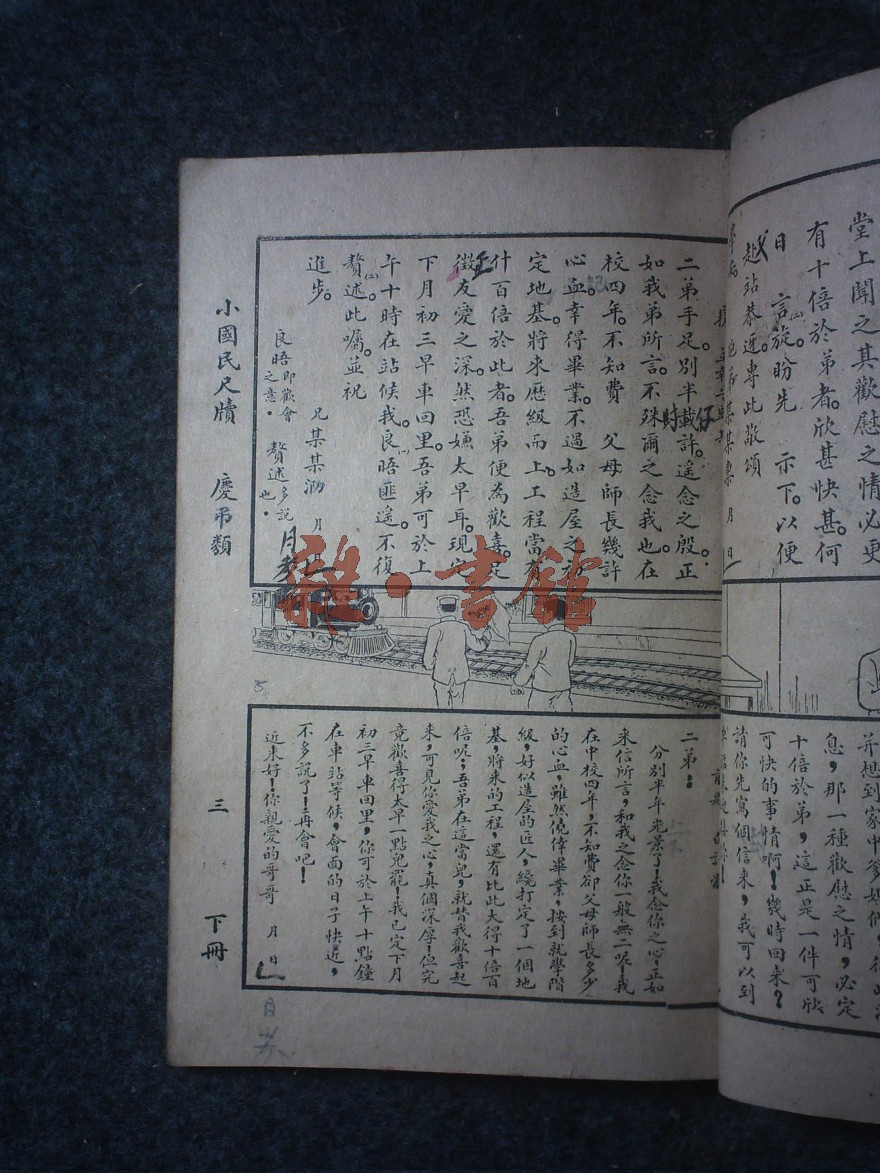 堂上聞之其歡慰之情必更
有十倍於弟者。欣甚快甚。何
日　言旋(一)。盼先　示下。以便
赴站恭迓。專此敬頌
二弟手足。別半載許。遙念之殷。正
如我弟所言。不殊爾之念我也。在
校四年。不知費　父母師長幾許
心血。幸得畢業。不過如造屋之初
定地基。將來歷級而上。工程當有
什百倍於此者。吾弟便為歡喜。足
徵友愛之深。然恐嫌太早耳。現定
下月初三早車回里。吾弟可於上
午十時在站候我。良晤(一)匪遙。不復
贅述(二)。此囑。並祝
進步。
兄某某泐　月　日
良晤即歡會之意．　贅述多說也．
并想到家中爹娘們，得此消
息，那一種歡慰之情，必定
十倍於弟，這正是一件可欣
可快的事情啊！幾時回來？
請你先寫個信來，我可以到
二弟：
分別半年光景了！我念你之心，正如
來信所言，和我之念你一般無二呢！我
在中校四年，不知費卻父母師長多少
的心血，雖然僥倖畢業，按到就學階
級，好似造屋的匠人，纔打定了一個地
基，將來的工程，還有比此大得十倍百
倍呢；吾弟在這當兒，就替我歡喜起
來，可見你愛我之心，真個深厚！但究
竟歡喜得太早一點兒罷！我已定下月
初三早車回里，你可於上午十點鐘
在車站等候，會面的日子快近，
不多說了！再會吧！
近來好！你親愛的哥哥　月　日
小國民尺牘　慶弔類　三　下冊
雜·書館